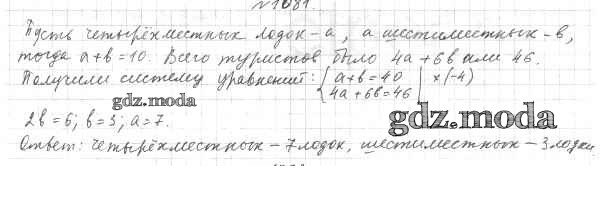 №1081.
Пусть четырёхместных лодок - a, а шестиместных - в,
тогда a+в=10. Всего туристов было 4a+6в или 46.
Получили систему уравнений: { a+в=40 | ×(-4)
4a+6в=46
gdz.moda
2в=6; в=3; a=7.
gdz.moda
Ответ: четырёхместных - 7 лодок, шестиместных - 3 лодки